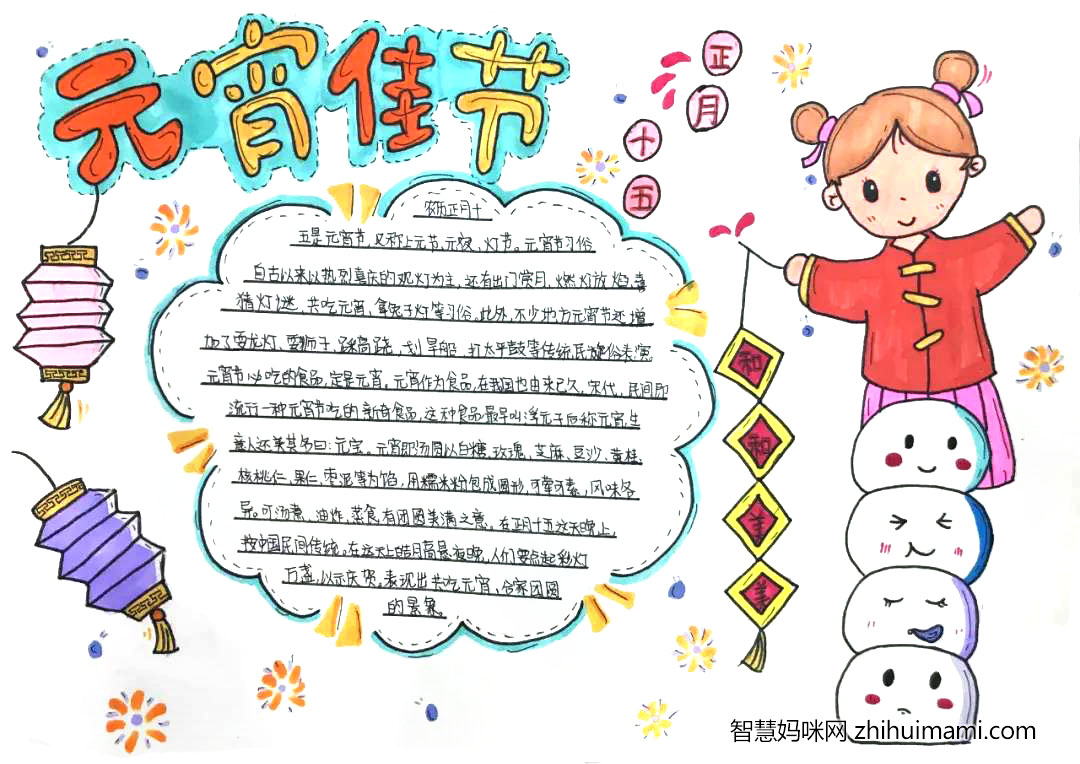 元宵佳节
正
月
十
五
农历正月十
五是元宵节,又称上元节、元夜、灯节。元宵节习俗
自古以来以热烈喜庆的观灯为主,还有出门赏月、燃灯放焰、喜
猜灯谜、共吃元宵、拿兔子灯等习俗。此外,不少地方元宵节还增
加了耍龙灯、耍狮子、踩高跷、划旱船、打太平鼓等传统民族俗表演
元宵节必吃的食品,定是元宵。元宵作为食品,在我国也由来已久。宋代,民间即
流行一种元宵节吃的新奇食品,这种食品最早叫浮元子后称元宵,生
意人还美其名曰:元宝。元宵即汤圆以白糖、玫瑰、芝麻、豆沙、黄桂、
核桃仁、果仁、枣泥等为馅,用糯米粉包成圆形,可荤可素,风味各
异。可汤煮、油炸、蒸食,有团圆美满之意。在正月十五这天晚上,
按中国民间传统。在这天上皓月高悬夜晚,人们要点起彩灯
万盏,以示庆贺。表现出共吃元宵,合家团圆
的景象。
和
和
美
美
智慧妈咪网 zhihuimami.com